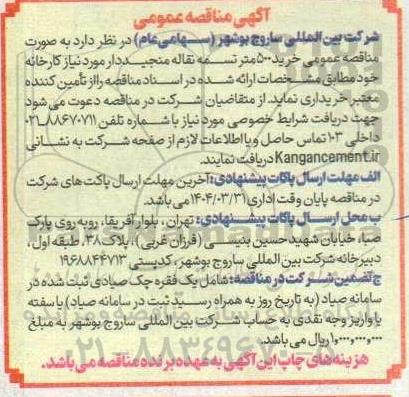 آگهی مناقصه عمومی
شرکت بین المللی ساروج بوشهر (سهامی عام) در نظر دارد به صورت
مناقصه عمومی خرید ۵۰۰ متر تسمه نقاله منجیددار مورد نیاز کارخانه
خود مطابق مشخصات ارائه شده در اسناد مناقصه را از تأمین کننده
معتبر خریداری نماید. از متقاضیان شرکت در مناقصه دعوت می شود
جهت دریافت شرایط خصوصی مورد نیاز با شماره تلفن ۸۸۶۷۰۷۱۱-۰۲۱
داخلی ۱۰۳ تماس حاصل و یا اطلاعات لازم از صفحه شرکت به نشانی
Kangancement.ir دریافت نمایند.
الف مهلت ارسال پاکات پیشنهادی: آخرین مهلت ارسال پاکت های شرکت
در مناقصه پایان وقت اداری ۱۴۰۴/۰۳/۳۱ می باشد.
ب محل ارسال پاکات پیشنهادی: تهران، بلوار آفریقا، روبه روی پارک
صبا، خیابان شهید حسین بنیسی (فرزان غربی)، پلاک ۳۸، طبقه اول،
دبیرخانه شرکت بین المللی ساروج بوشهر، کدپستی ۱۹۶۸۸۴۴۷۱۳
ج تضمین شرکت در مناقصه: شامل یک فقره چک صیادی ثبت شده در
سامانه صیاد (به تاریخ روز به همراه رسید ثبت در سامانه صیاد) یا سفته
یا واریز وجه نقدی به حساب شرکت بین المللی ساروج بوشهر به مبلغ
۱۰,۰۰۰,۰۰۰,۰۰۰ ریال می باشد.
هزینه های چاپ این آگهی به عهده برنده مناقصه می باشد.